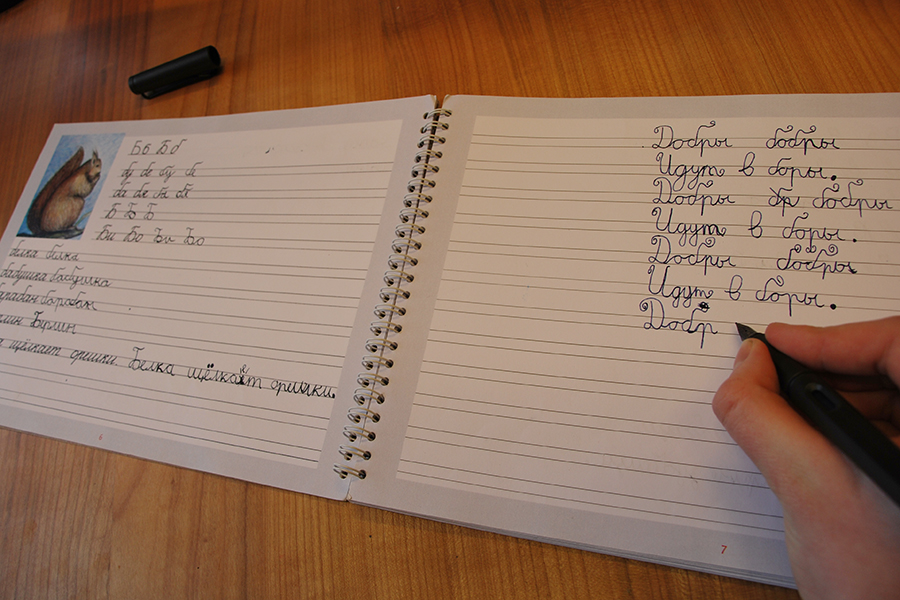 Б б Б б
бу бе бу
Б Б Б
Би Бо Би Бо
белка белка
бабушка бабушка
барабан
Берлин
щёлкает орешки. Белка щёлкает орешки.
Добры бобры
Идут в боры.
Добры бобры
Идут в боры.
Добры бобры
Идут в боры.
Добр
7